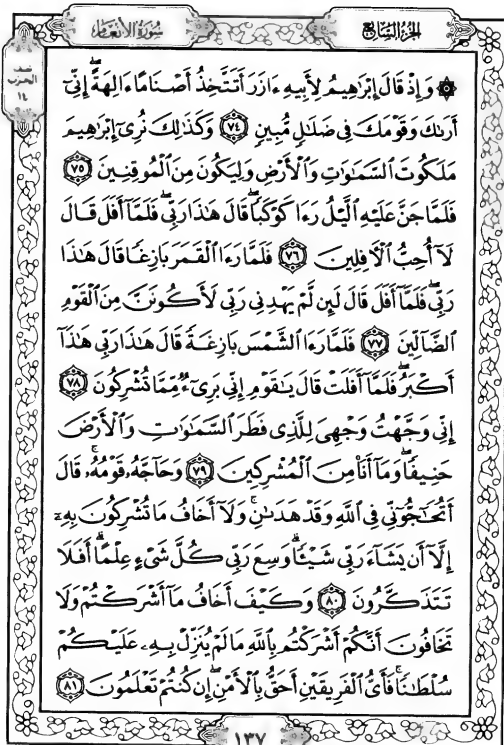 سُورَةُ الأَنْعَامِ
الجُزْءُ السَّابِعُ
نصف
الحزب
١٤
۞ وَإِذْ قَالَ إِبْرَاهِيمُ لِأَبِيهِ ءَازَرَ أَتَتَّخِذُ أَصْنَامًا ءَالِهَةً إِنِّيٓ
أَرَىٰكَ وَقَوْمَكَ فِي ضَلَٰلٍ مُّبِينٍ ٧٤ وَكَذَٰلِكَ نُرِيٓ إِبْرَٰهِيمَ
مَلَكُوتَ ٱلسَّمَٰوَٰتِ وَٱلْأَرْضِ وَلِيَكُونَ مِنَ ٱلْمُوقِنِينَ ٧٥
فَلَمَّا جَنَّ عَلَيْهِ ٱلَّيْلُ رَءَا كَوْكَبًا ۖ قَالَ هَٰذَا رَبِّي ۖ فَلَمَّآ أَفَلَ قَالَ
لَآ أُحِبُّ ٱلْءَافِلِينَ ٧٦ فَلَمَّا رَءَا ٱلْقَمَرَ بَازِغًا قَالَ هَٰذَا
رَبِّي ۖ فَلَمَّآ أَفَلَ قَالَ لَئِن لَّمْ يَهْدِنِي رَبِّي لَأَكُونَنَّ مِنَ ٱلْقَوْمِ
ٱلضَّآلِّينَ ٧٧ فَلَمَّا رَءَا ٱلشَّمْسَ بَازِغَةً قَالَ هَٰذَا رَبِّي هَٰذَآ
أَكْبَرُ ۖ فَلَمَّآ أَفَلَتْ قَالَ يَٰقَوْمِ إِنِّي بَرِيٓءٌ مِّمَّا تُشْرِكُونَ ٧٨
إِنِّي وَجَّهْتُ وَجْهِيَ لِلَّذِي فَطَرَ ٱلسَّمَٰوَٰتِ وَٱلْأَرْضَ
حَنِيفًا ۖ وَمَآ أَنَا۠ مِنَ ٱلْمُشْرِكِينَ ٧٩ وَحَآجَّهُۥ قَوْمُهُۥ ۚ قَالَ
أَتُحَٰٓجُّوٓنِّي فِي ٱللَّهِ وَقَدْ هَدَىٰنِ ۚ وَلَآ أَخَافُ مَا تُشْرِكُونَ بِهِۦٓ
إِلَّآ أَن يَشَآءَ رَبِّي شَيْـًٔا ۗ وَسِعَ رَبِّي كُلَّ شَيْءٍ عِلْمًا ۗ أَفَلَا
تَتَذَكَّرُونَ ٨٠ وَكَيْفَ أَخَافُ مَآ أَشْرَكْتُمْ وَلَا
تَخَافُونَ أَنَّكُمْ أَشْرَكْتُم بِٱللَّهِ مَا لَمْ يُنَزِّلْ بِهِۦ عَلَيْكُمْ
سُلْطَٰنًا ۚ فَأَيُّ ٱلْفَرِيقَيْنِ أَحَقُّ بِٱلْأَمْنِ ۖ إِن كُنتُمْ تَعْلَمُونَ ٨١
١٣٧